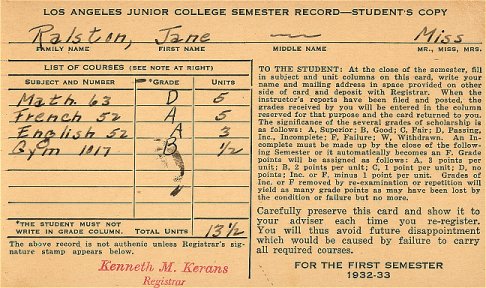 LOS ANGELES JUNIOR COLLEGE SEMESTER RECORD—STUDENT'S COPY
Ralston, Jane — Miss
FAMILY NAME FIRST NAME MIDDLE NAME MR., MISS, MRS.
LIST OF COURSES (SEE NOTE AT RIGHT)
SUBJECT AND NUMBER *GRADE UNITS
Math. 63 D 5
French 52 A 5
English 52 A 3
Gym 1017 B 1/2
*THE STUDENT MUST NOT
WRITE IN GRADE COLUMN. TOTAL UNITS 13 1/2
The above record is not authenic unless Registrar's sig-
nature stamp appears below.
Kenneth M. Kerans
Registrar
TO THE STUDENT: At the close of the semester, fill
in subject and unit columns on this card, write your
name and mailing address in space provided on other
side of card and deposit with Registrar. When the
instructor's reports have been filed and posted, the
grades received by you will be entered in the column
reserved for that purpose and the card returned to you.
The significance of the several grades of scholarship is
as follows: A, Superior; B, Good; C, Fair; D, Passing,
Inc., Incomplete; F, Failure; W, Withdrawn. An In-
complete must be made up by the close of the follow-
ing Semester or it automatically becomes an F. Grade
points will be assigned as follows: A, 3 points per
unit; B, 2 points per unit; C, 1 point per unit; D, no
points; Inc. or F, minus 1 point per unit. Grades of
Inc. or F removed by re-examination or repetition will
yield as many grade points as may have been lost by
the condition or failure but no more.
Carefully preserve this card and show it to
your adviser each time you re-register.
You will thus avoid future disappointment
which would be caused by failure to carry
all required courses.
FOR THE FIRST SEMESTER
1932-33